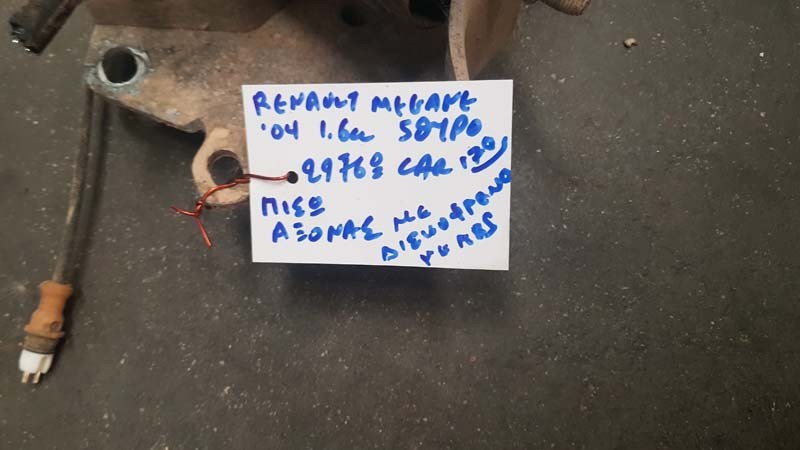 RENAULT MEGANE
'04 1.6cc 5ΘΥΡΟ
CAR
ΠΙΣΩ
ΑΞΟΝΑΣ ΜΕ
ΔΙΣΚΟΦΡΕΝΟ
ABS